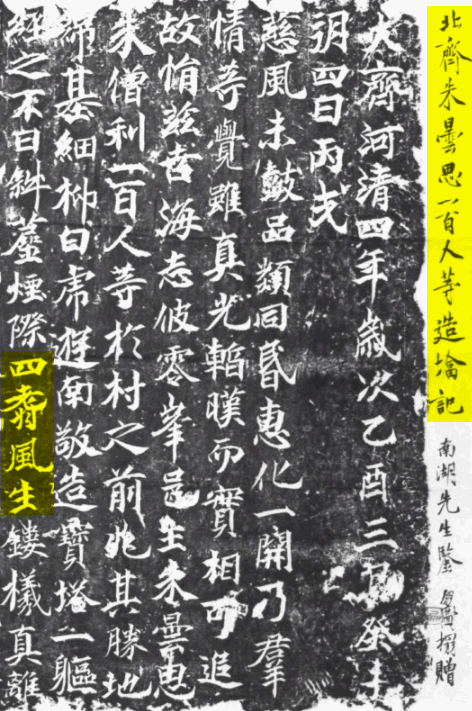 北齊朱曇思一百人等造墖記 南湖先生鑒 搨贈
大齊河清四年歲次乙酉三月癸未
朔四日丙戌
慈風未皷品類同昏惠化一開乃群
情等覺雖真光韜暎而實相可追
故脩茲古海志彼零峯是主朱曇思
朱僧利一百人等於村之前兆其勝地
締基細柳曰虎遊南敬造寶塔一軀
經之不日斜煙際四齊風生鏤檥真離